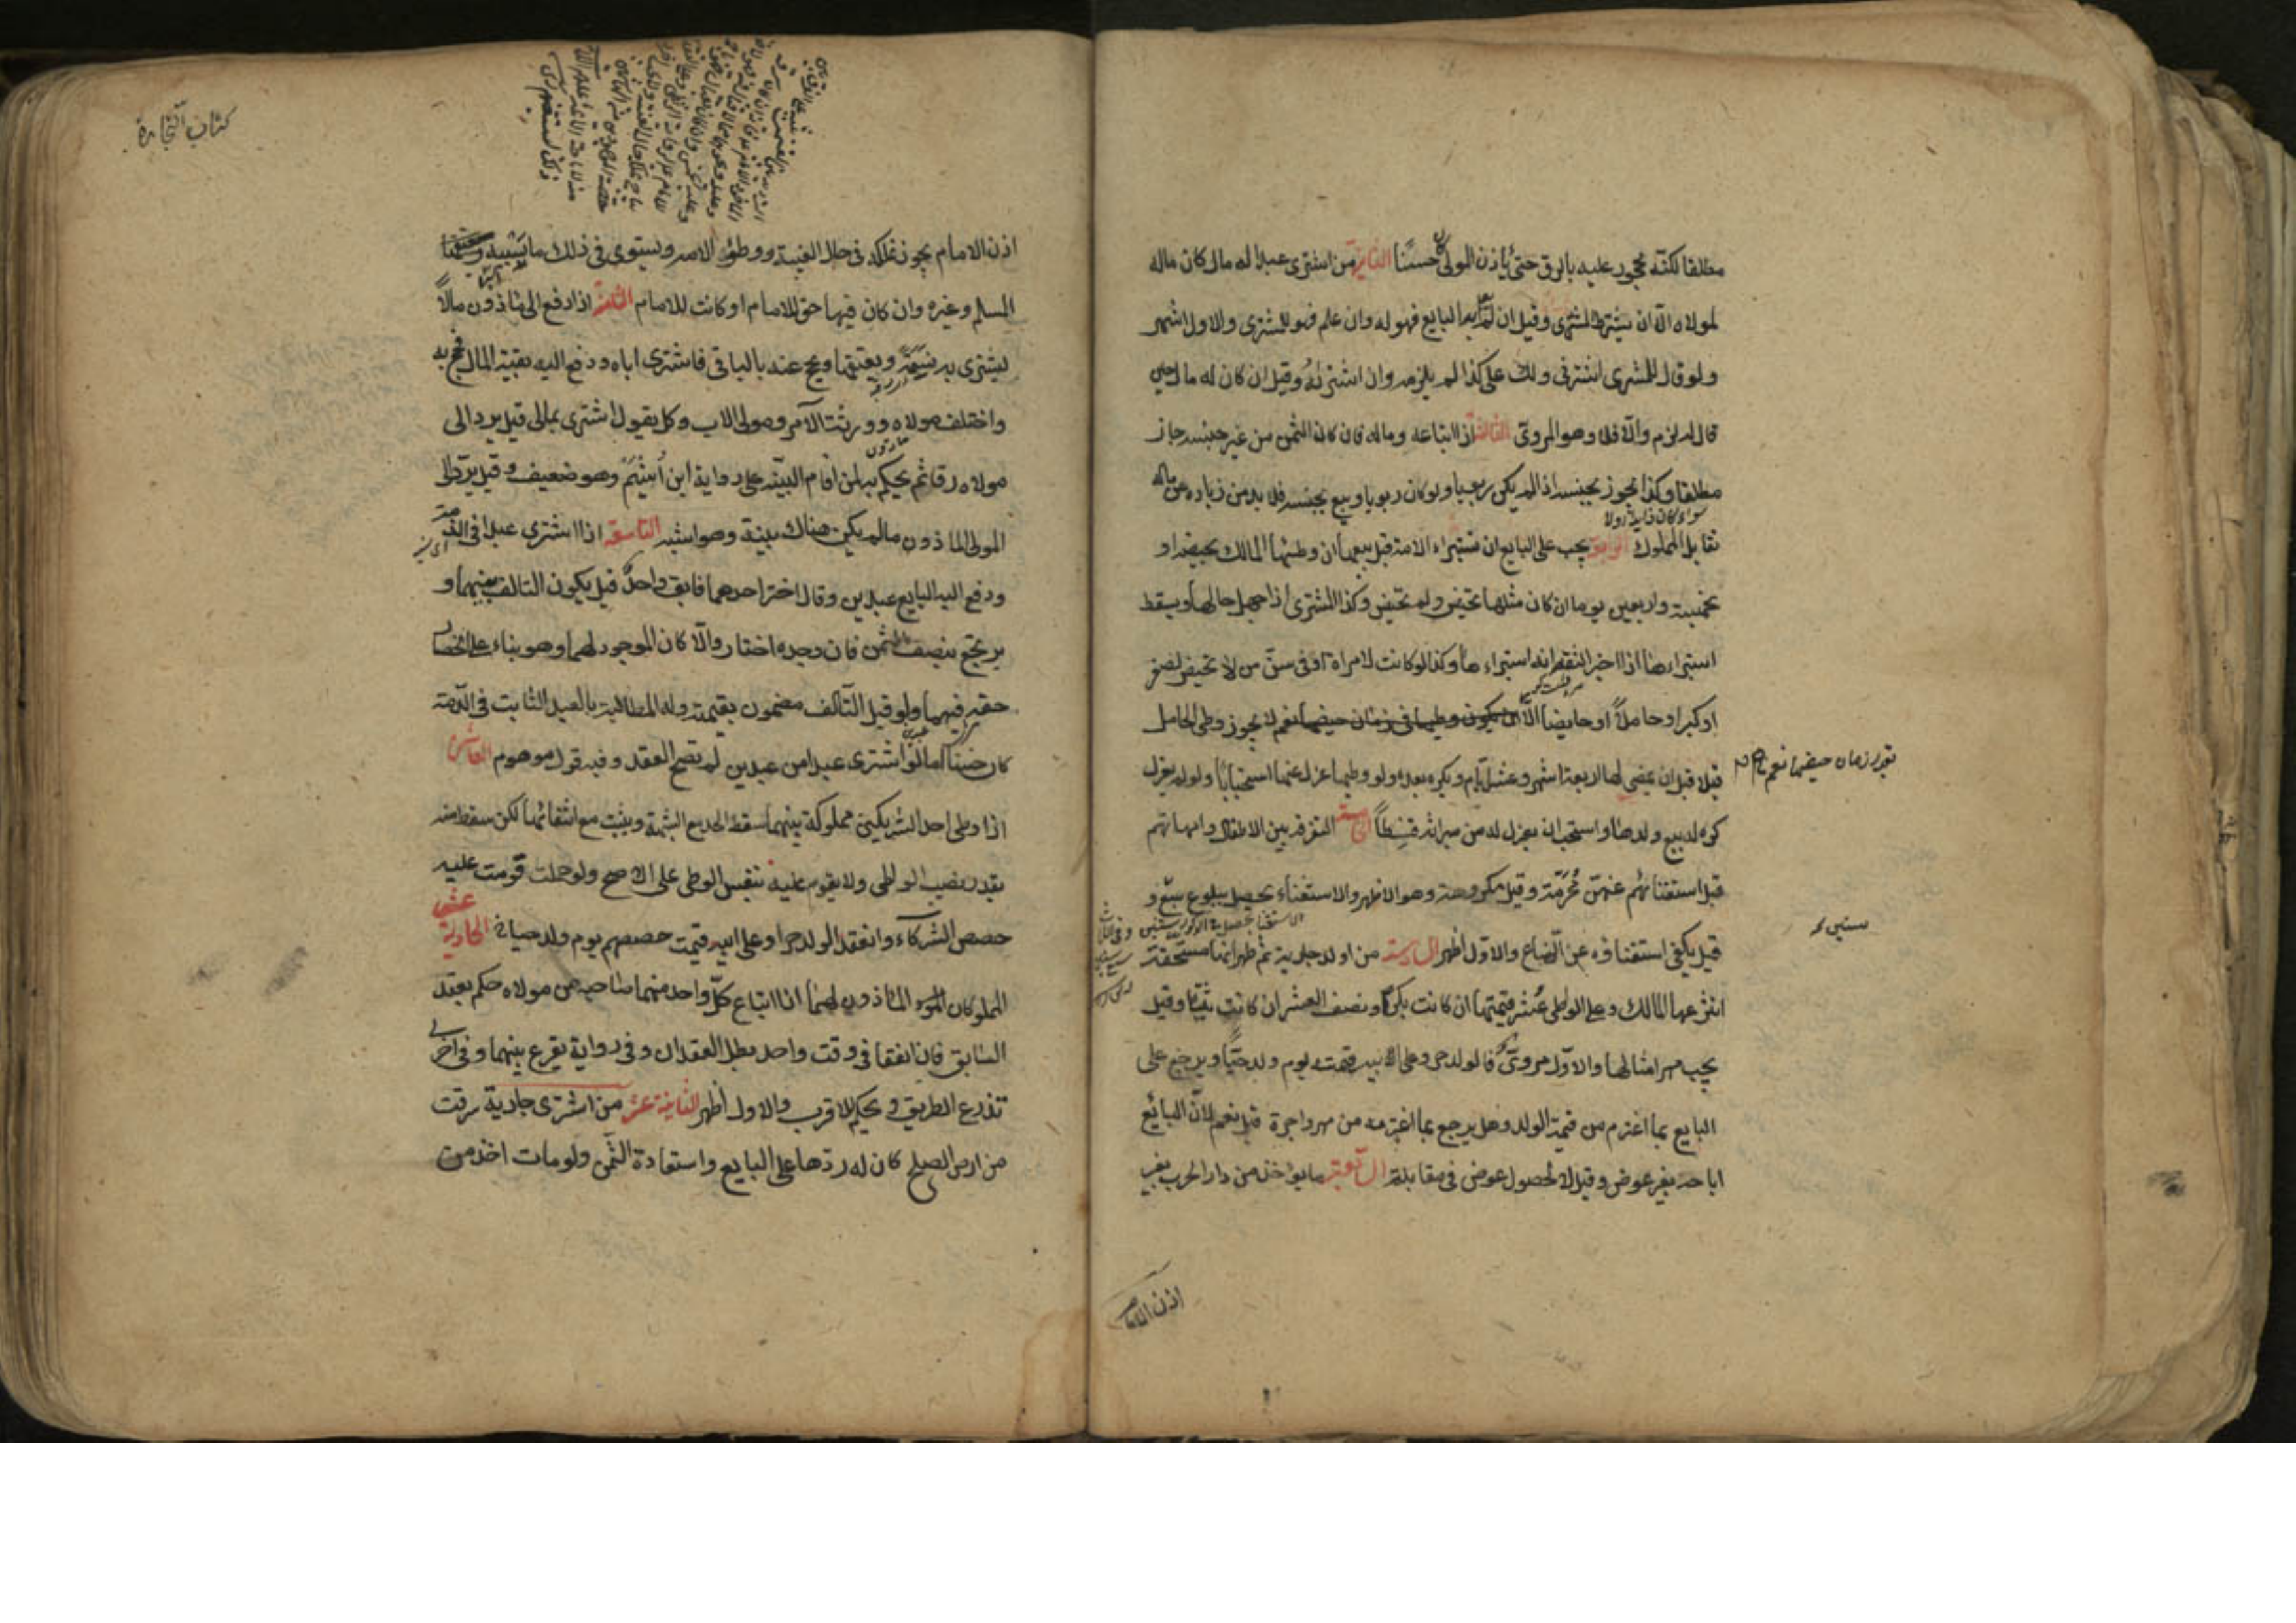 مطلقا لكنّه محجور عليه بالرق حتى ياذن المولى كان حسنا الثانية من اشترى عبدا له مال كان ماله
لمولاه الّا ان يشترط المشترى وقيل ان لم يعلم به البايع فهو له وان علم فهو للمشترى والاول اشهر
ولو قال للمشترى اشترنى ولك على كذا لم يلزمه وان اشتراه وقيل ان كان له مال حين
قال له لزم والّا فلا وهو المروىّ الثالثة اذا ابتاعه وماله فان كان الثمن من غير جنسه جاز
مطلقا وكذا يجوز بجنسه اذا لم يكن ربويا ولو كان ربويا وبيع بجنسه فلا بد من زيادة عن ماله
تقابل المملوك الرابعة يجب على البايع ان يستبراء الامة قبل بيعها ان وطئها المالك بحيضة او
بخمسة واربعين يوما ان كان مثلها تحيض ولم تحض وكذا المشترى اذا جهل حالها ويسقط
استبراءها اذا اخبر الثقة انه استبراءها وكذا لو كانت لامراة او فى سنّ من لا تحيض لصغر
او كبر او حاملاً او حايضا الّا نعم لا يجوز وطى الحامل
بقدر زمان حيضها نعم
قبلا قبل ان يمضى لها اربعة اشهر وعشرة ايام ويكره بعده ولو وطيها عزل عنها استحبابا ولو لم يعزل
كره له بيع ولدها واستحب ان يعزل له من ميراثه قسطاً الخامسة التفرقة بين الاطفال وامهاتهم
قبل استغنائهم عنهنّ محرّمة وقيل مكروهة وهو الاظهر والاستغناء يحصل ببلوغ سبع و
سنين
قيل يكفى استغناؤه عن الرضاع والاول اظهر السادسة من اولد جارية ثم ظهر انها مستحقة
انتزعها المالك وعلى الواطى عشر قيمتها ان كانت بكرا ونصف العشر ان كانت ثيّبا وقيل
يجب مهر امثالها والاوّل مروىّ والولد حر وعلى الاب قيمته يوم ولد حيّا ويرجع على
البايع بما اغترم من قيمة الولد وهل يرجع بما اغترمه من مهر واجرة قيل نعم لانّ البائع
اباحه بغير عوض وقيل لا لحصول عوض فى مقابلته السابعة ما يؤاخذ من دار الحرب بغير
اذن الامام
كتاب التجارة
اذن الامام يجوز تملكه فى حال الغيبة ووطؤ الامة ويستوى فى ذلك ما يسبيه
المسلم وغيره وان كان فيها حق للامام او كانت للامام الثامنة اذا دفع الى ماذون مالاً
ليشترى به نسمة ويعتقها ويحج عنه بالباقى فاشترى اباه ودفع اليه بقية المال فحج به
واختلف مولاه وورثة الآمر ومولى الاب وكل يقول اشترى بمالى قيل يرد الى
مولاه رقا ثم يحكم به لمن اقام البيّنه على رواية ابن اشيم وهو ضعيف وقيل يردّ الى
المولى الماذون ما لم يكن هناك بينة وهو اشبه التاسعة اذا اشترى عبدا فى الذمة
ودفع اليه البايع عبدين وقال اختر احدهما فابق واحد قيل يكون التالف بينهما و
يرتجع بنصف الثمن فان وجده اختار والّا كان الموجود لهما وهو بناء على انحصار
حقه فيهما ولو قيل التالف مضمون بقيمته وله المطالبة بالعبد الثابت فى الذمة
كان حسنا امّا لو اشترى عبدا من عبدين لم يصح العقد وفيه قول موهوم العاشرة
اذا وطى احد الشريكين مملوكة بينهما سقط الحد مع الشبهة ويثبت مع انتفائها لكن سقط منه
بقدر نصيب الواطى ولا يقوم عليه بنفس الوطى على الاصح ولو حملت قومت عليه
حصص الشركاء وانعقد الولد حرا وعلى ابيه قيمت حصصهم يوم ولد حيا الحادية عشر
المملوكان الماذون لهما اذا ابتاع كلّ واحد منهما صاحبه من مولاه حكم بعقد
السابق فان اتفقا فى وقت واحد بطل العقدان وفى رواية يقرع بينهما وفى اخرى
تذرع الطريق ويحكم للاقرب والاول اظهر الثانية عشر من اشترى جارية سرقت
من ارض الصلح كان له ردّها على البايع واستعادة الثّمن ولو مات اخذ من